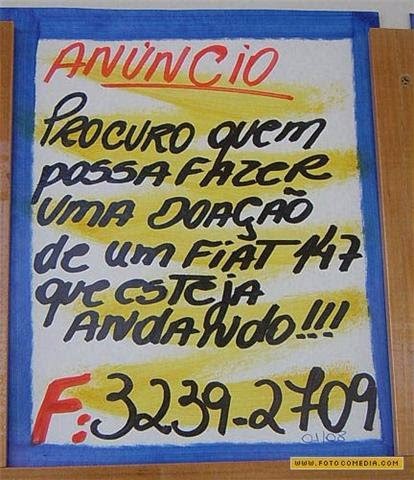 ANÚNCIO
PROCURO quem
possa FAZER
uma DOAÇÃO
de um FIAT 147
que esteja
ANDANDO!!!
F: 3239-2709
01/08
WWW.FOTOCOMEDIA.COM